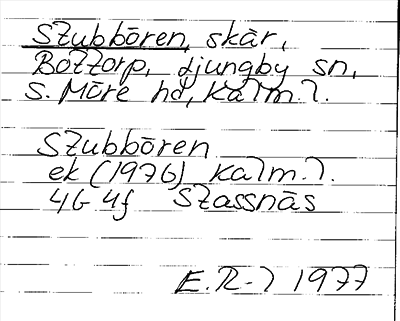 Stubbören, skär,
Bottorp, Ljungby sn,
S. Möre hd, Kalm. l.
Stubbören
ek (1976) Kalm. l.
4G 4f Stassnäs
E.R-l 1977